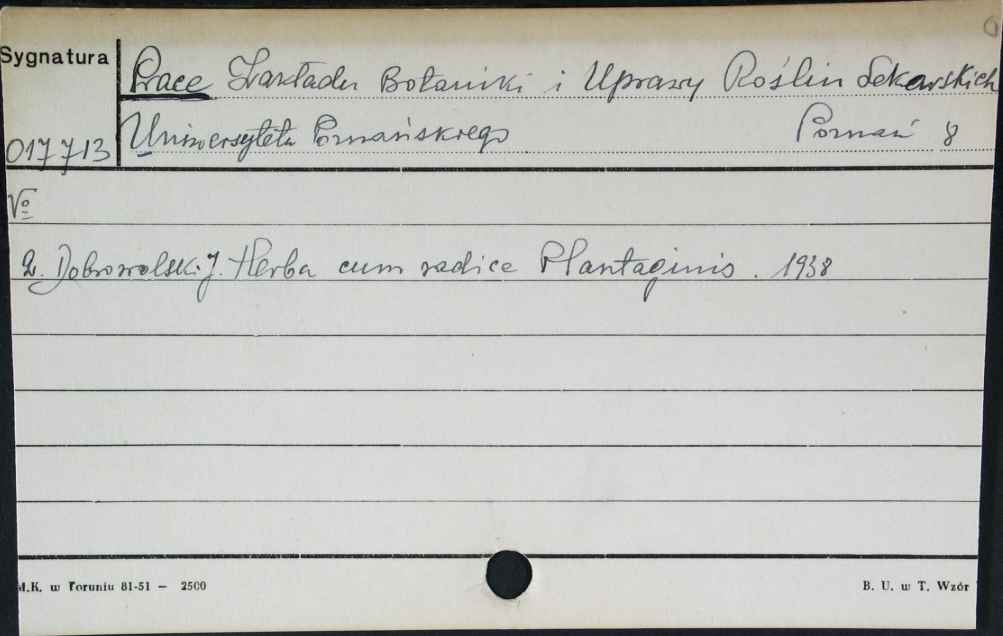 Sygnatura
Prace Zakładu Botaniki i Uprawy Roślin Lekarskich
017713
Uniwersytetu Poznańskiego Poznań 8
No
2. Dobrowolski J. Herba cum radice Plantaginis. 1938
M.K. w Toruniu 81-51 — 2500
B. U. w T. Wzór